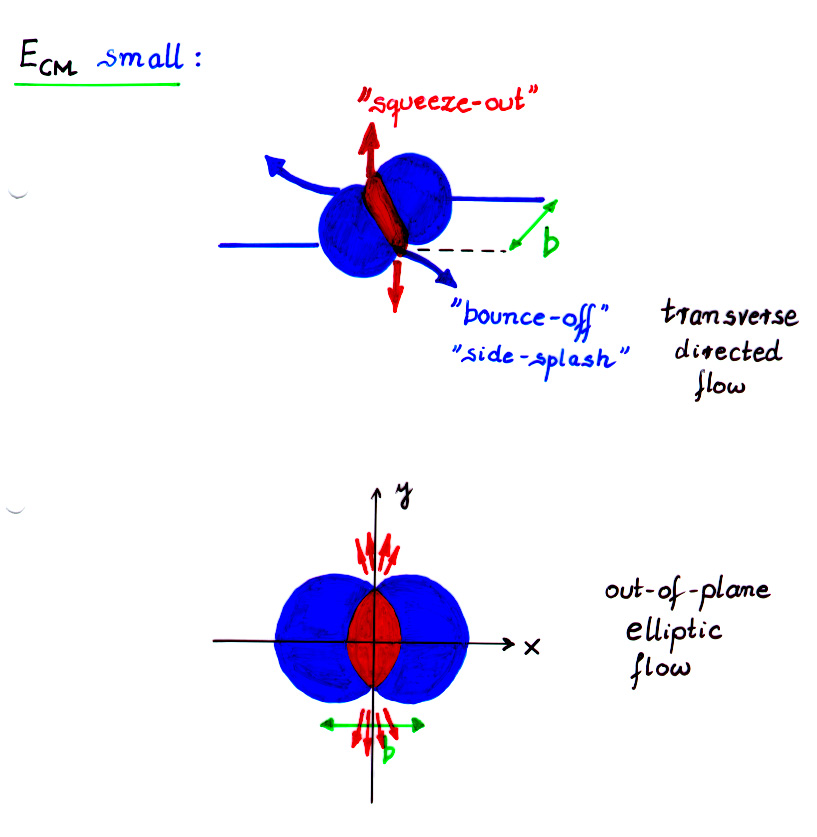 E_CM small :
"squeeze-out"
b
"bounce-off"
"side-splash"
transverse
directed
flow
y
x
b
out-of-plane
elliptic
flow